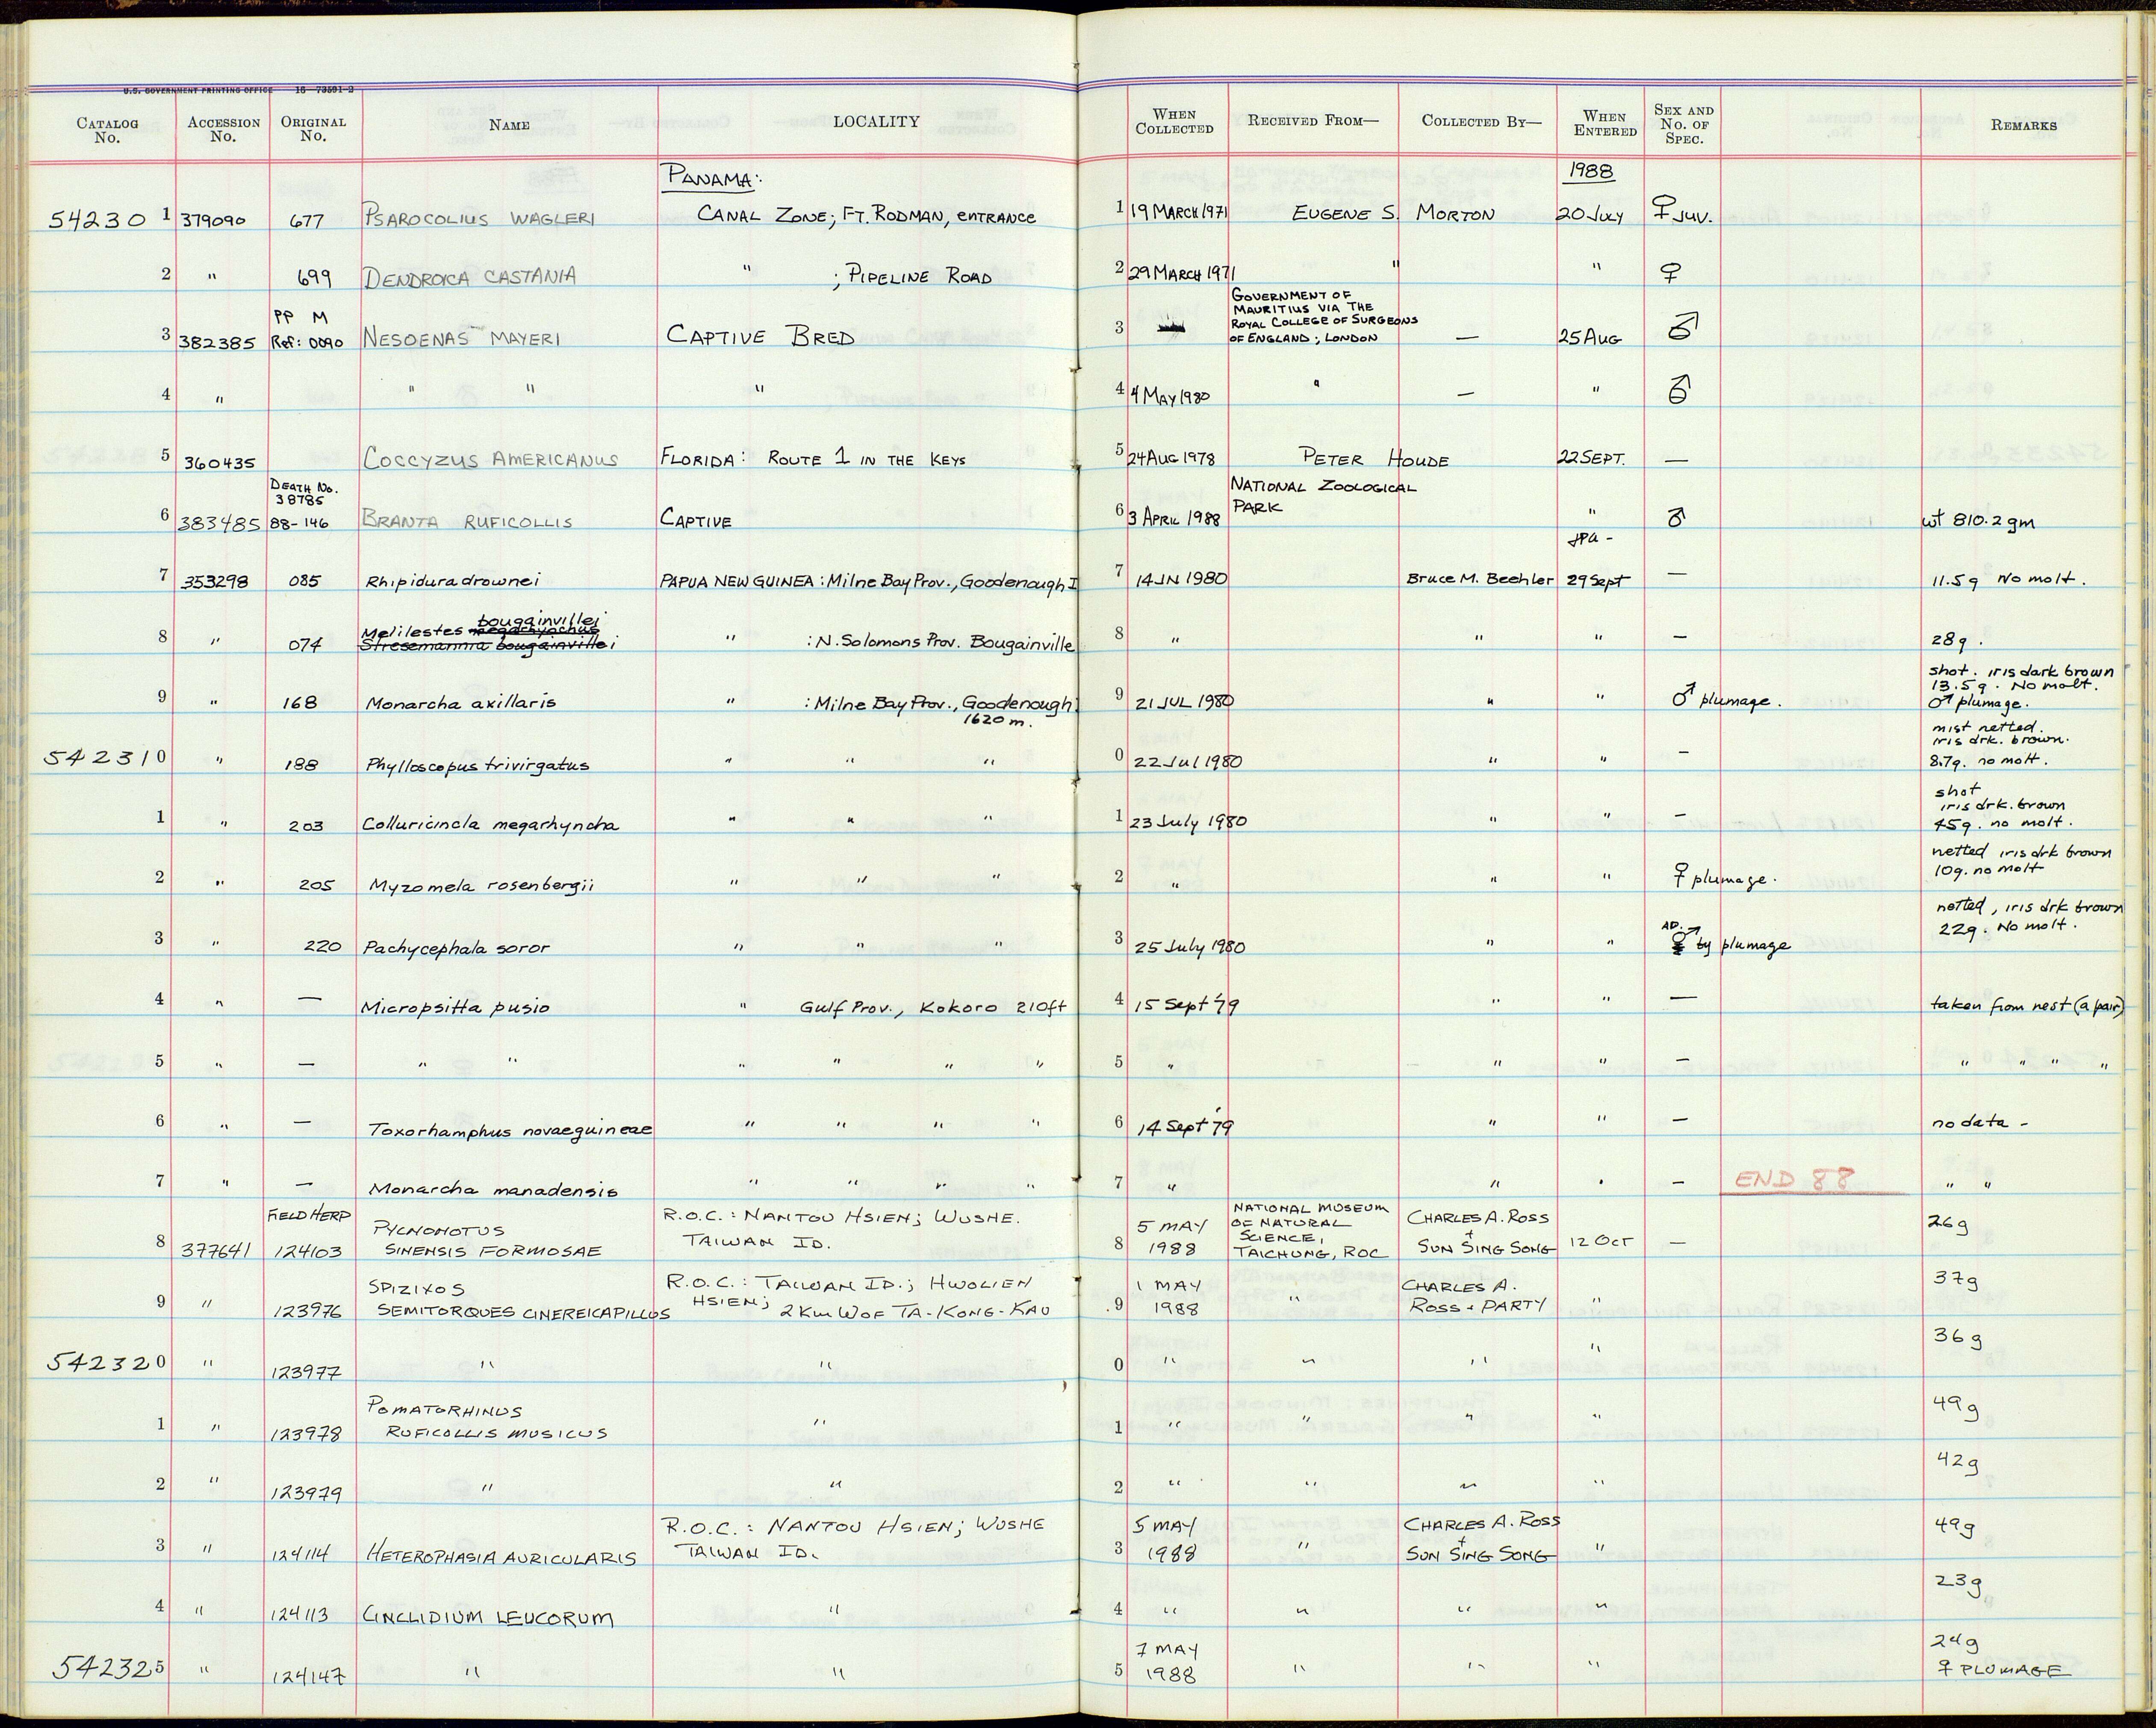 U.S. GOVERNMENT PRINTING OFFICE 16—73591-2
CATALOG No. ACCESSION No. ORIGINAL No. NAME LOCALITY WHEN COLLECTED RECEIVED FROM— COLLECTED BY— WHEN ENTERED SEX AND No. OF SPEC. REMARKS
PANAMA: 1988
54230 1 379090 677 PSAROCOLIUS WAGLERI CANAL ZONE; FT. RODMAN, ENTRANCE 1 19 MARCH 1971 EUGENE S. MORTON 20 JULY ♀ JUV.
2 " 699 DENDROICA CASTANIA " ; PIPELINE ROAD 2 29 MARCH 1971 " " ♀
PP M GOVERNMENT OF
MAURITIUS VIA THE
ROYAL COLLEGE OF SURGEONS
3 382385 Ref: 0090 NESOENAS MAYERI CAPTIVE BRED 3 OF ENGLAND; LONDON — 25 AUG ♂
4 " " " " 4 4 MAY 1980 " — " ♂
5 360435 COCCYZUS AMERICANUS FLORIDA: ROUTE 1 IN THE KEYS 5 24 AUG 1978 PETER HOUDE 22 SEPT. —
DEATH No. NATIONAL ZOOLOGICAL
38785 PARK
6 383485 88-146 BRANTA RUFICOLLIS CAPTIVE 6 3 APRIL 1988 " ♂ wt 810.2 gm
JPA -
7 353298 085 Rhipidura drownei PAPUA NEW GUINEA: Milne Bay Prov., Goodenough I 7 14 JN 1980 Bruce M. Beehler 29 Sept — 11.5g No molt.
bougainvillei
Melilestes megarhynchus
8 " 074 Stresemannia bougainvillei " : N. Solomons Prov. Bougainville 8 " " " — 28g.
shot. iris dark brown
13.5g. No molt.
9 " 168 Monarcha axillaris " : Milne Bay Prov., Goodenough 9 21 JUL 1980 " " ♂ plumage. ♂ plumage.
1620 m.
mist netted.
iris drk. brown.
54231 0 " 188 Phylloscopus trivirgatus " " " 0 22 Jul 1980 " " — 8.7g. no molt.
shot
iris drk. brown
1 " 203 Colluricincla megarhyncha " " " 1 23 July 1980 " " — 45g. no molt.
netted iris drk brown
2 " 205 Myzomela rosenbergii " " " 2 " " " ♀ plumage. 10g. no molt
AD. netted, iris drk brown
3 " 220 Pachycephala soror " " " 3 25 July 1980 " " ♂ by plumage 22g. No molt.
4 " — Micropsitta pusio " Gulf Prov., Kokoro 210ft 4 15 Sept '79 " " — taken from nest (a pair)
5 " — " " " " " " 5 " " " — " " " "
6 " — Toxorhamphus novaeguineae " " " " 6 14 Sept '79 " " — no data -
7 " — Monarcha manadensis " " " " 7 " " " — END 88 " "
FIELD HERP PYCNONOTUS R.O.C.: NANTOU HSIEN; WUSHE. 5 MAY NATIONAL MUSEUM OF NATURAL CHARLES A. ROSS 26g
8 377641 124103 SINENSIS FORMOSAE TAIWAN ID. 8 1988 SCIENCE, TAICHUNG, ROC + SUN SING SONG 12 OCT —
SPIZIXOS R.O.C.: TAIWAN ID.; HWOLIEN 1 MAY CHARLES A. 37g
9 " 123976 SEMITORQUES CINEREICAPILLUS HSIEN; 2 Km W OF TA-KONG-KAU 9 1988 " ROSS + PARTY "
54232 0 " 123977 " " 0 " " " " 36g
POMATORHINUS 49g
1 " 123978 RUFICOLLIS MUSICUS " 1 " " " "
2 " 123979 " " 2 " " " " 42g
R.O.C.: NANTOU HSIEN; WUSHE 5 MAY CHARLES A. ROSS 49g
3 " 124114 HETEROPHASIA AURICULARIS TAIWAN ID. 3 1988 " + SUN SING SONG "
4 " 124113 CINCLIDIUM LEUCORUM " 4 " " " " 23g
7 MAY 24g
54232 5 " 124147 " " 5 1988 " " " ♀ PLUMAGE